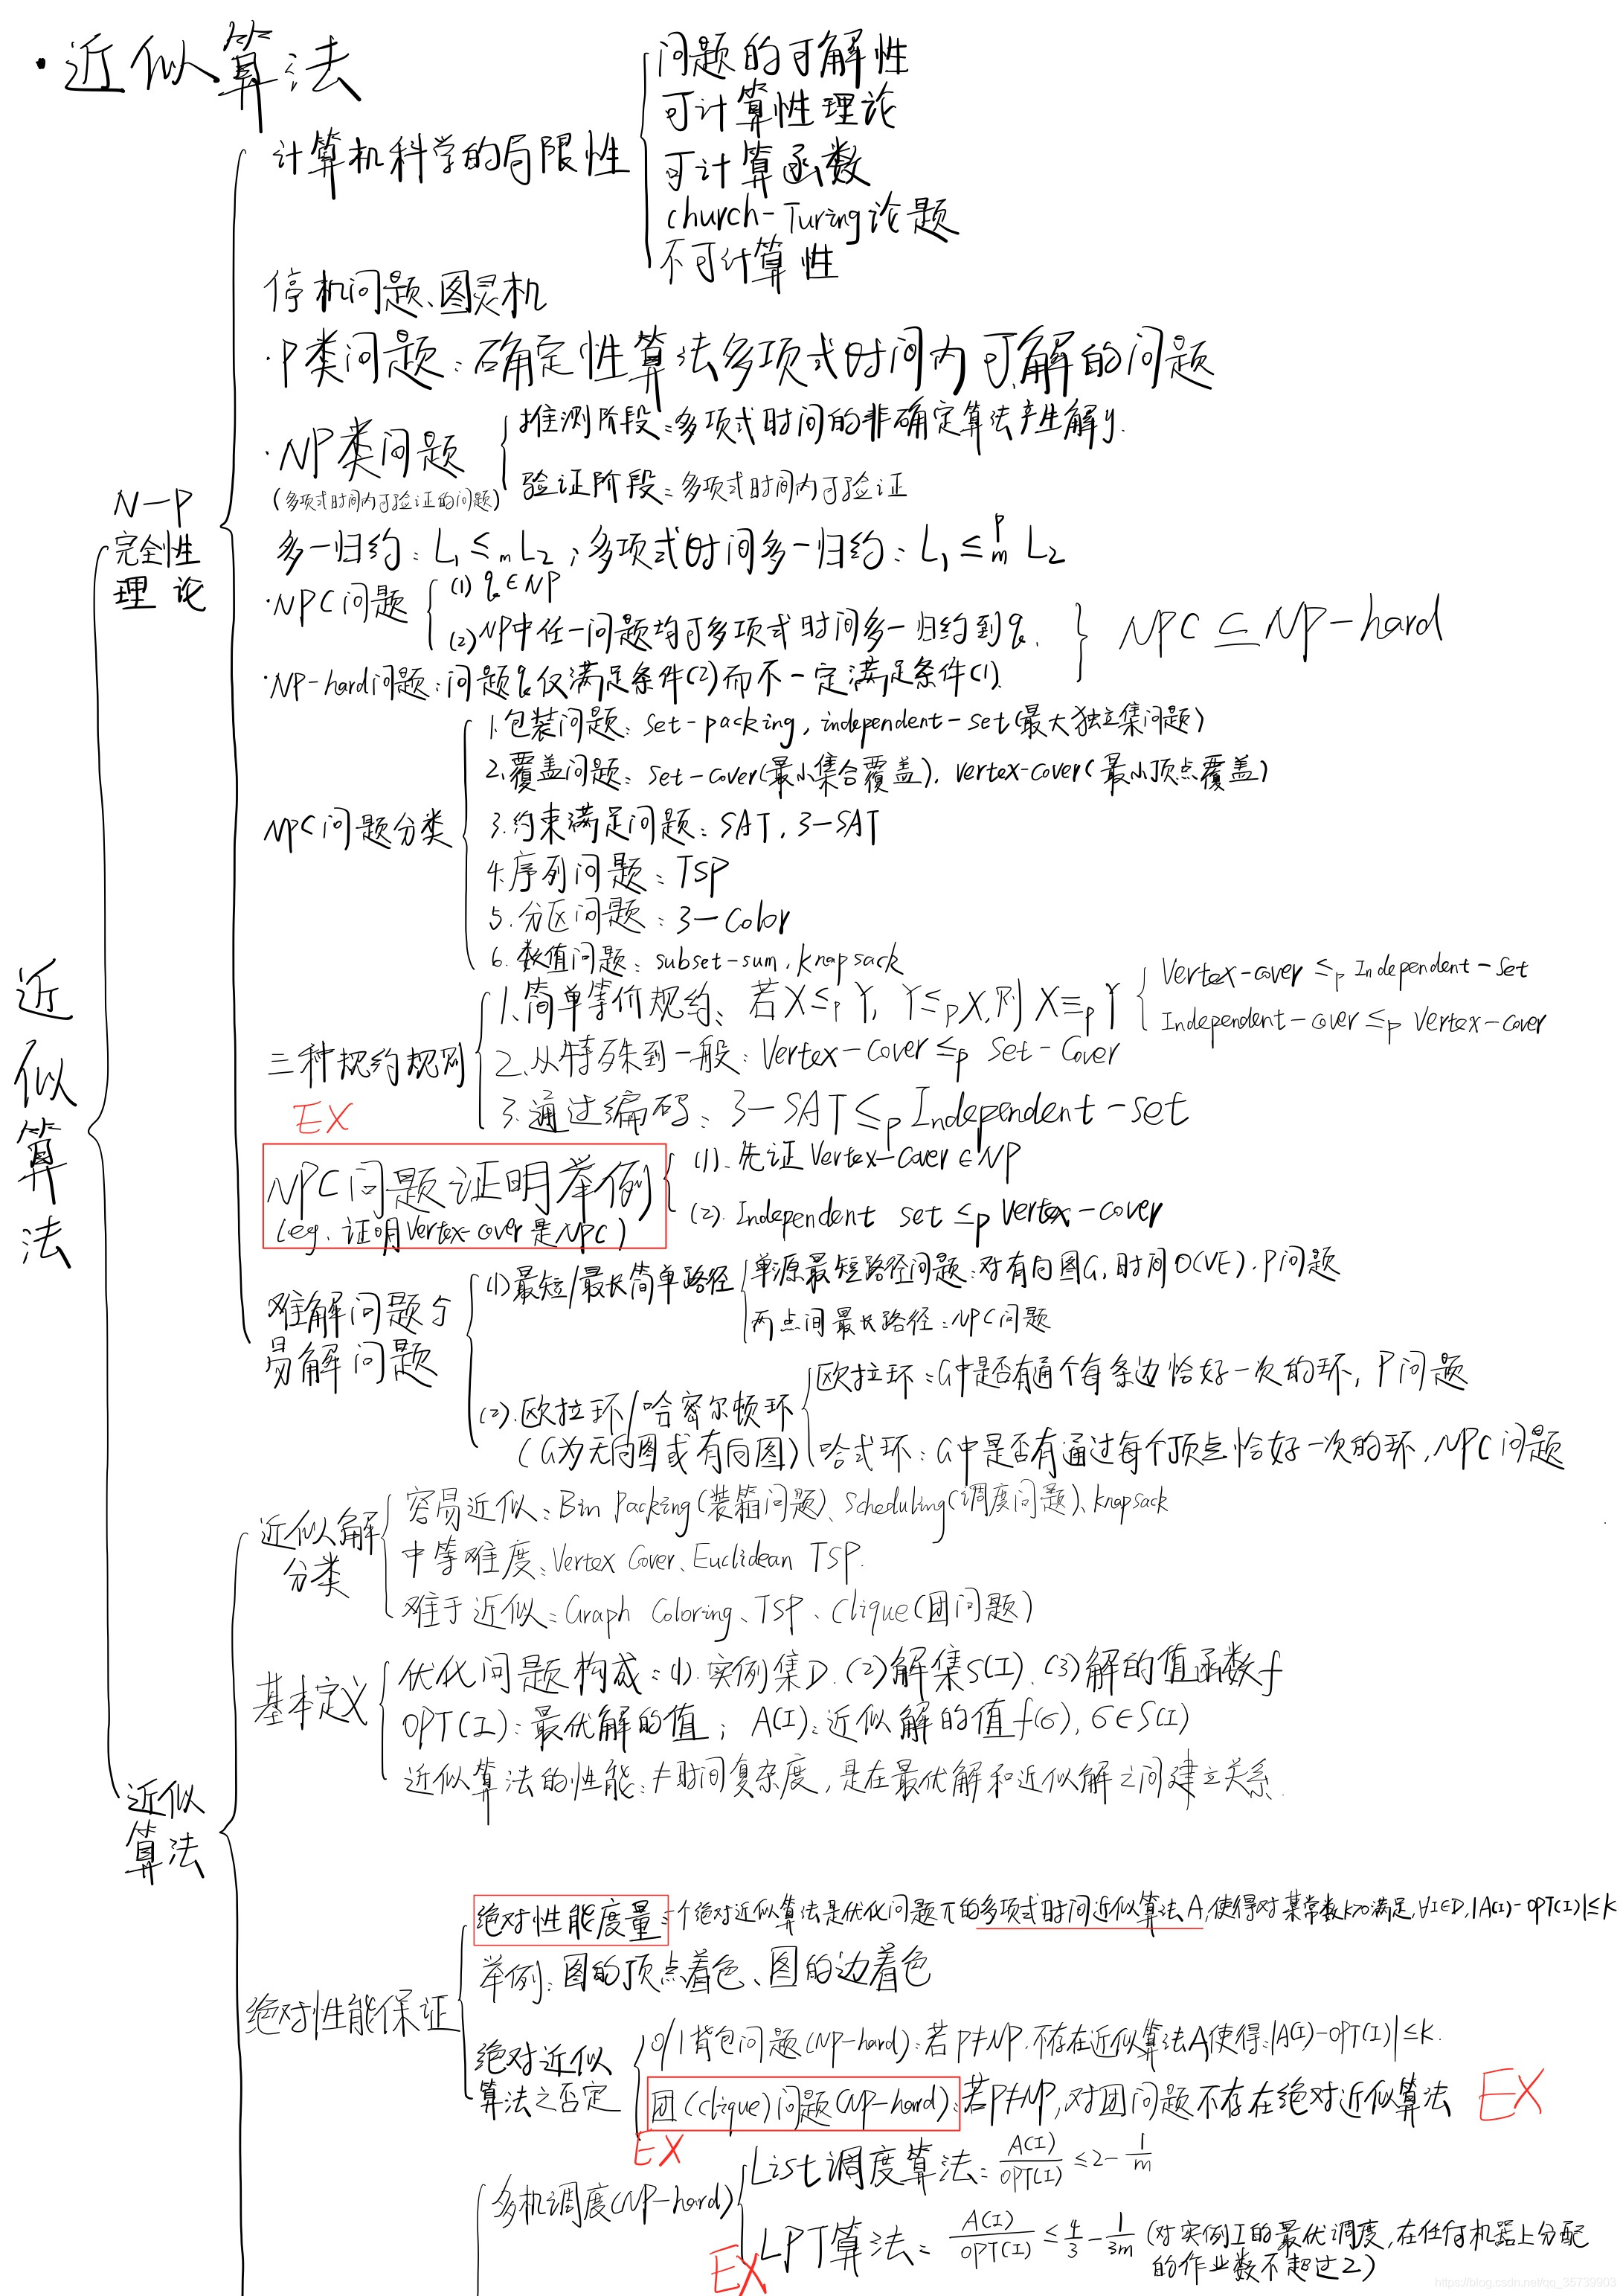 ·近似算法
近似算法
N-P
完全性
理论
计算机科学的局限性
问题的可解性
可计算性理论
可计算函数
church-Turing论题
不可计算性
停机问题、图灵机
·P类问题：确定性算法多项式时间内可解的问题
·NP类问题
(多项式时间内可验证的问题)
推测阶段：多项式时间的非确定算法产生解y.
验证阶段：多项式时间内可验证
多一归约：L₁ ≤m L₂；多项式时间多一归约：L₁ ≤ᵖm L₂
·NPC问题
(1) q∈NP
(2) NP中任一问题均可多项式时间多一归约到q.
·NP-hard问题：问题q仅满足条件(2)而不一定满足条件(1).
NPC ⊆ NP-hard
NPC问题分类
1.包装问题：set-packing, independent-set(最大独立集问题)
2.覆盖问题：set-cover(最小集合覆盖). vertex-cover(最小顶点覆盖)
3.约束满足问题：SAT, 3-SAT
4.序列问题：TSP
5.分区问题：3-Color
6.数值问题：subset-sum, knapsack
三种规约规则
1.简单等价规约：若X≤pY, Y≤pX, 则X≡pY
Vertex-cover ≤p Independent-Set
Independent-cover ≤p Vertex-cover
2.从特殊到一般：Vertex-cover ≤p Set-Cover
3.通过编码：3-SAT ≤p Independent-set
EX
NPC问题证明举例
(eg. 证明Vertex-cover是NPC)
(1). 先证Vertex-cover∈NP
(2). Independent set ≤p Vertex-cover
难解问题与
易解问题
(1)最短/最长简单路径
单源最短路径问题：对有向图G, 时间O(VE). P问题
两点间最长路径：NPC问题
(2).欧拉环/哈密尔顿环
(G为无向图或有向图)
欧拉环：G中是否有通个每条边恰好一次的环, P问题
哈式环：G中是否有通过每个顶点恰好一次的环, NPC问题
近似
算法
近似解
分类
容易近似：Bin Packing(装箱问题)、Scheduling(调度问题)、knapsack
中等难度：Vertex Cover、Euclidean TSP.
难于近似：Graph Coloring、TSP、Clique(团问题)
基本定义
优化问题构成：(1).实例集D.(2)解集S(I).(3)解的值函数f
OPT(I)：最优解的值；A(I)：近似解的值f(σ), σ∈S(I)
近似算法的性能：≠时间复杂度, 是在最优解和近似解之间建立关系.
绝对性能保证
绝对性能度量：一个绝对近似算法是优化问题π的多项式时间近似算法A, 使得对某常数k>0满足, ∀I∈D, |A(I)-OPT(I)|≤k
举例：图的顶点着色、图的边着色
绝对近似
算法之否定
0/1背包问题(NP-hard)：若P≠NP, 不存在近似算法A使得：|A(I)-OPT(I)|≤k.
团(clique)问题(NP-hard)：若P≠NP, 对团问题不存在绝对近似算法 EX
EX
多机调度(NP-hard)
List调度算法：A(I)/OPT(I) ≤ 2 - 1/m
LPT算法：A(I)/OPT(I) ≤ 4/3 - 1/3m (对实例I的最优调度, 在任何机器上分配
的作业数不超过2)
EX
https://blog.csdn.net/qq_35739903